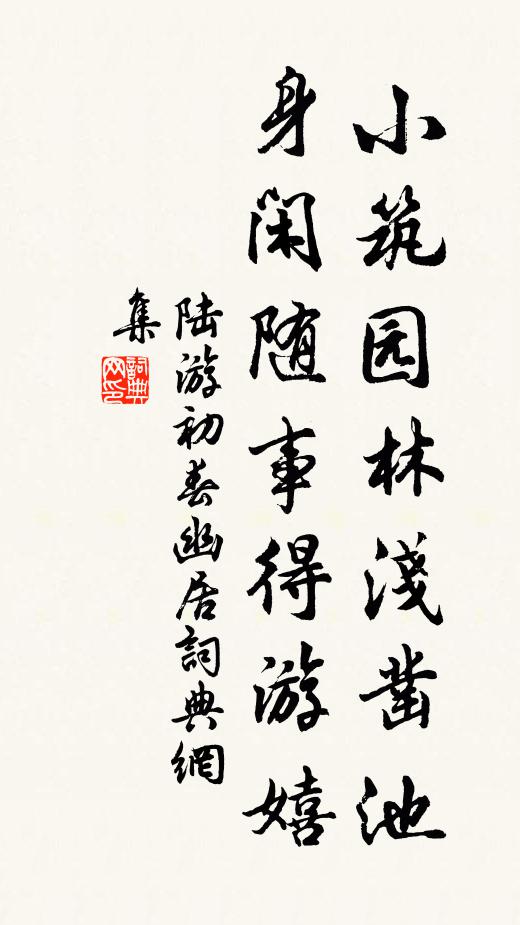 小筑园林淺凿池
身闲随事得游嬉
陆游初春幽居詞典網
集
詞典
网印